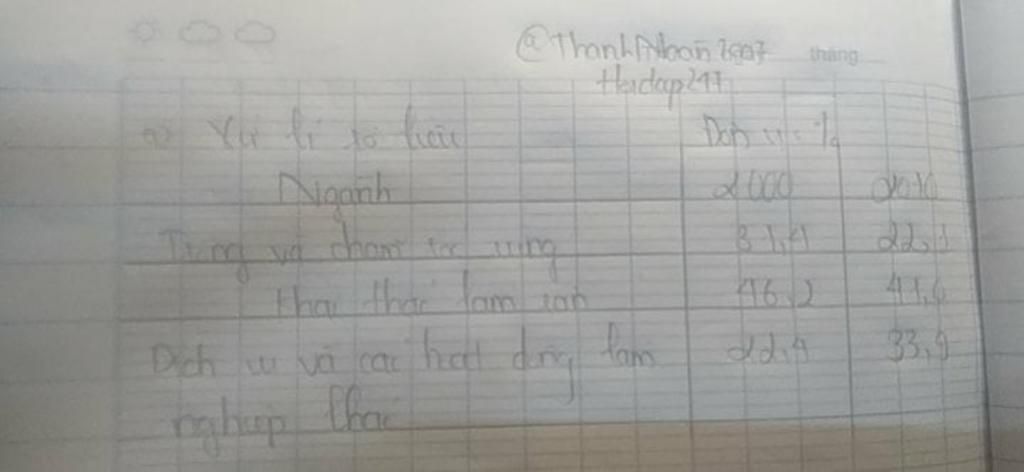 @ThanhNhan2007 tháng
Hoidap247
a) Xử lí số liệu Đơn vị: %
Ngành 2000 2010
Trồng và chăm sóc rừng 31,4
khai thác lâm sản 46,2
Dịch vụ và các hoạt động lâm 22,4 33,9
nghiệp khác